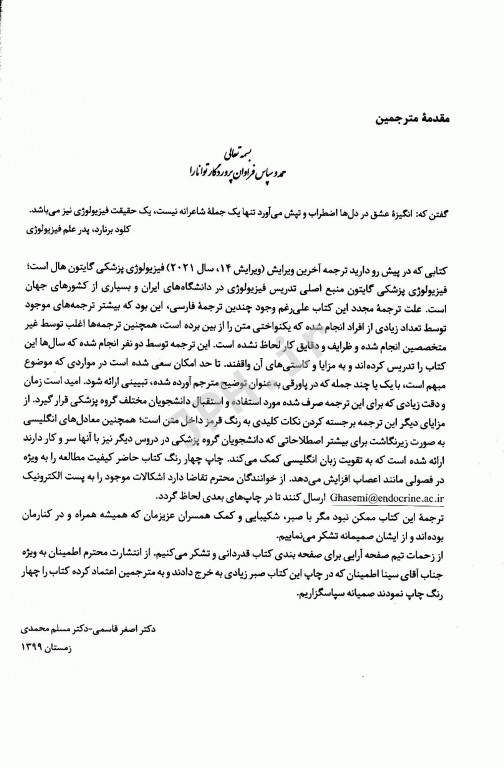 مقدمهٔ مترجمین
بسمه تعالی
حمد و سپاس فراوان پروردگار توانا را
گفتن که: انگیزهٔ عشق در دل‌ها اضطراب و تپش می‌آورد تنها یک جملهٔ شاعرانه نیست، یک حقیقت فیزیولوژی نیز می‌باشد.
کلود برنارد، پدر علم فیزیولوژی
کتابی که در پیش رو دارید ترجمه آخرین ویرایش (ویرایش ۱۴، سال ۲۰۲۱) فیزیولوژی پزشکی گایتون هال است؛
فیزیولوژی پزشکی گایتون منبع اصلی تدریس فیزیولوژی در دانشگاه‌های ایران و بسیاری از کشورهای جهان
است. علت ترجمهٔ مجدد این کتاب علی‌رغم وجود چندین ترجمهٔ فارسی، این بود که بیشتر ترجمه‌های موجود
توسط تعداد زیادی از افراد انجام شده که یکنواختی متن را از بین برده است، همچنین ترجمه‌ها اغلب توسط غیر
متخصصین انجام شده و ظرایف و دقایق کار لحاظ نشده است. این ترجمه توسط دو نفر انجام شده که سال‌ها این
کتاب را تدریس کرده‌اند و به مزایا و کاستی‌های آن واقفند. تا حد امکان سعی شده است در مواردی که موضوع
مبهم است، با یک یا چند جمله که در پاورقی به عنوان توضیح مترجم آورده شده، تبیینی ارائه شود. امید است زمان
و دقت زیادی که برای این ترجمه صرف شده مورد استفاده و استقبال دانشجویان مختلف گروه پزشکی قرار گیرد. از
مزایای دیگر این ترجمه برجسته کردن نکات کلیدی به رنگ قرمز داخل متن است؛ همچنین معادل‌های انگلیسی
به صورت زیرنگاشت برای بیشتر اصطلاحاتی که دانشجویان گروه پزشکی در دروس دیگر نیز با آنها سر و کار دارند
ارائه شده است که به تقویت زبان انگلیسی کمک می‌کند. چاپ چهار رنگ کتاب حاضر کیفیت مطالعه را به ویژه
در فصولی مانند اعصاب افزایش می‌دهد. از خوانندگان محترم تقاضا دارد اشکالات موجود را به پست الکترونیک
Ghasemi@endocrine.ac.ir ارسال کنند تا در چاپ‌های بعدی لحاظ گردد.
ترجمهٔ این کتاب ممکن نبود مگر با صبر، شکیبایی و کمک همسران عزیزمان که همیشه همراه و در کنارمان
بوده‌اند و از ایشان صمیمانه تشکر می‌نماییم.
از زحمات تیم صفحه آرایی برای صفحه بندی کتاب قدردانی و تشکر می‌کنیم. از انتشارت محترم اطمینان به ویژه
جناب آقای سینا اطمینان که در چاپ این کتاب صبر زیادی به خرج دادند و به مترجمین اعتماد کرده کتاب را چهار
رنگ چاپ نمودند صمیانه سپاسگزاریم.
دکتر اصغر قاسمی-دکتر مسلم محمدی
زمستان ۱۳۹۹